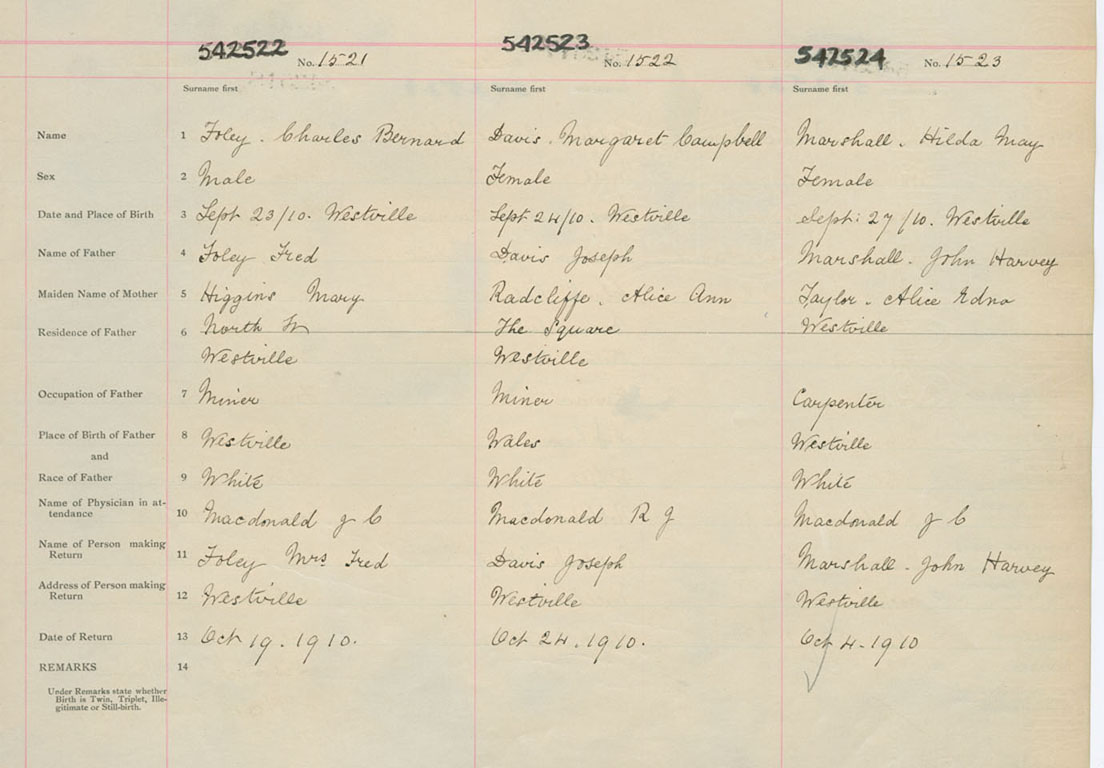 542522 No. 1521 542523 No. 1522 542524 No. 1523
Surname first Surname first Surname first
Name 1 Foley. Charles Bernard Davis. Margaret Campbell Marshall. Hilda May
Sex 2 Male Female Female
Date and Place of Birth 3 Sept 23/10. Westville Sept 24/10. Westville Sept: 27/10. Westville
Name of Father 4 Foley Fred Davis Joseph Marshall. John Harvey
Maiden Name of Mother 5 Higgins Mary Radcliffe. Alice Ann Taylor. Alice Edna
Residence of Father 6 North The Square Westville
Westville Westville
Occupation of Father 7 Miner Miner Carpenter
Place of Birth of Father 8 Westville Wales Westville
and
Race of Father 9 White White White
Name of Physician in at-
tendance 10 Macdonald J C Macdonald R J Macdonald J C
Name of Person making
Return 11 Foley Mrs Fred Davis Joseph Marshall. John Harvey
Address of Person making
Return 12 Westville Westville Westville
Date of Return 13 Oct 19. 1910. Oct 24. 1910. Oct 4-1910
REMARKS 14
Under Remarks state whether
Birth is Twin, Triplet, Ille-
gitimate or Still-birth.